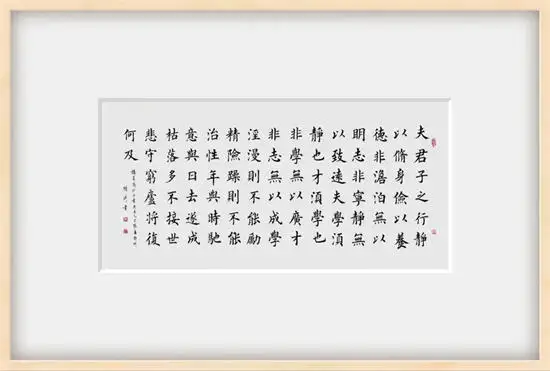 夫君子之行静
以脩身儉以養
德非澹泊無以
明志非寧静無
以致遠夫學湏
静也才湏學也
非學無以廣才
非志無以成學
淫漫則不能勵
精險躁則不能
治性年與時馳
意與日去遂成
枯落多不接世
悲守窮廬將復
何及